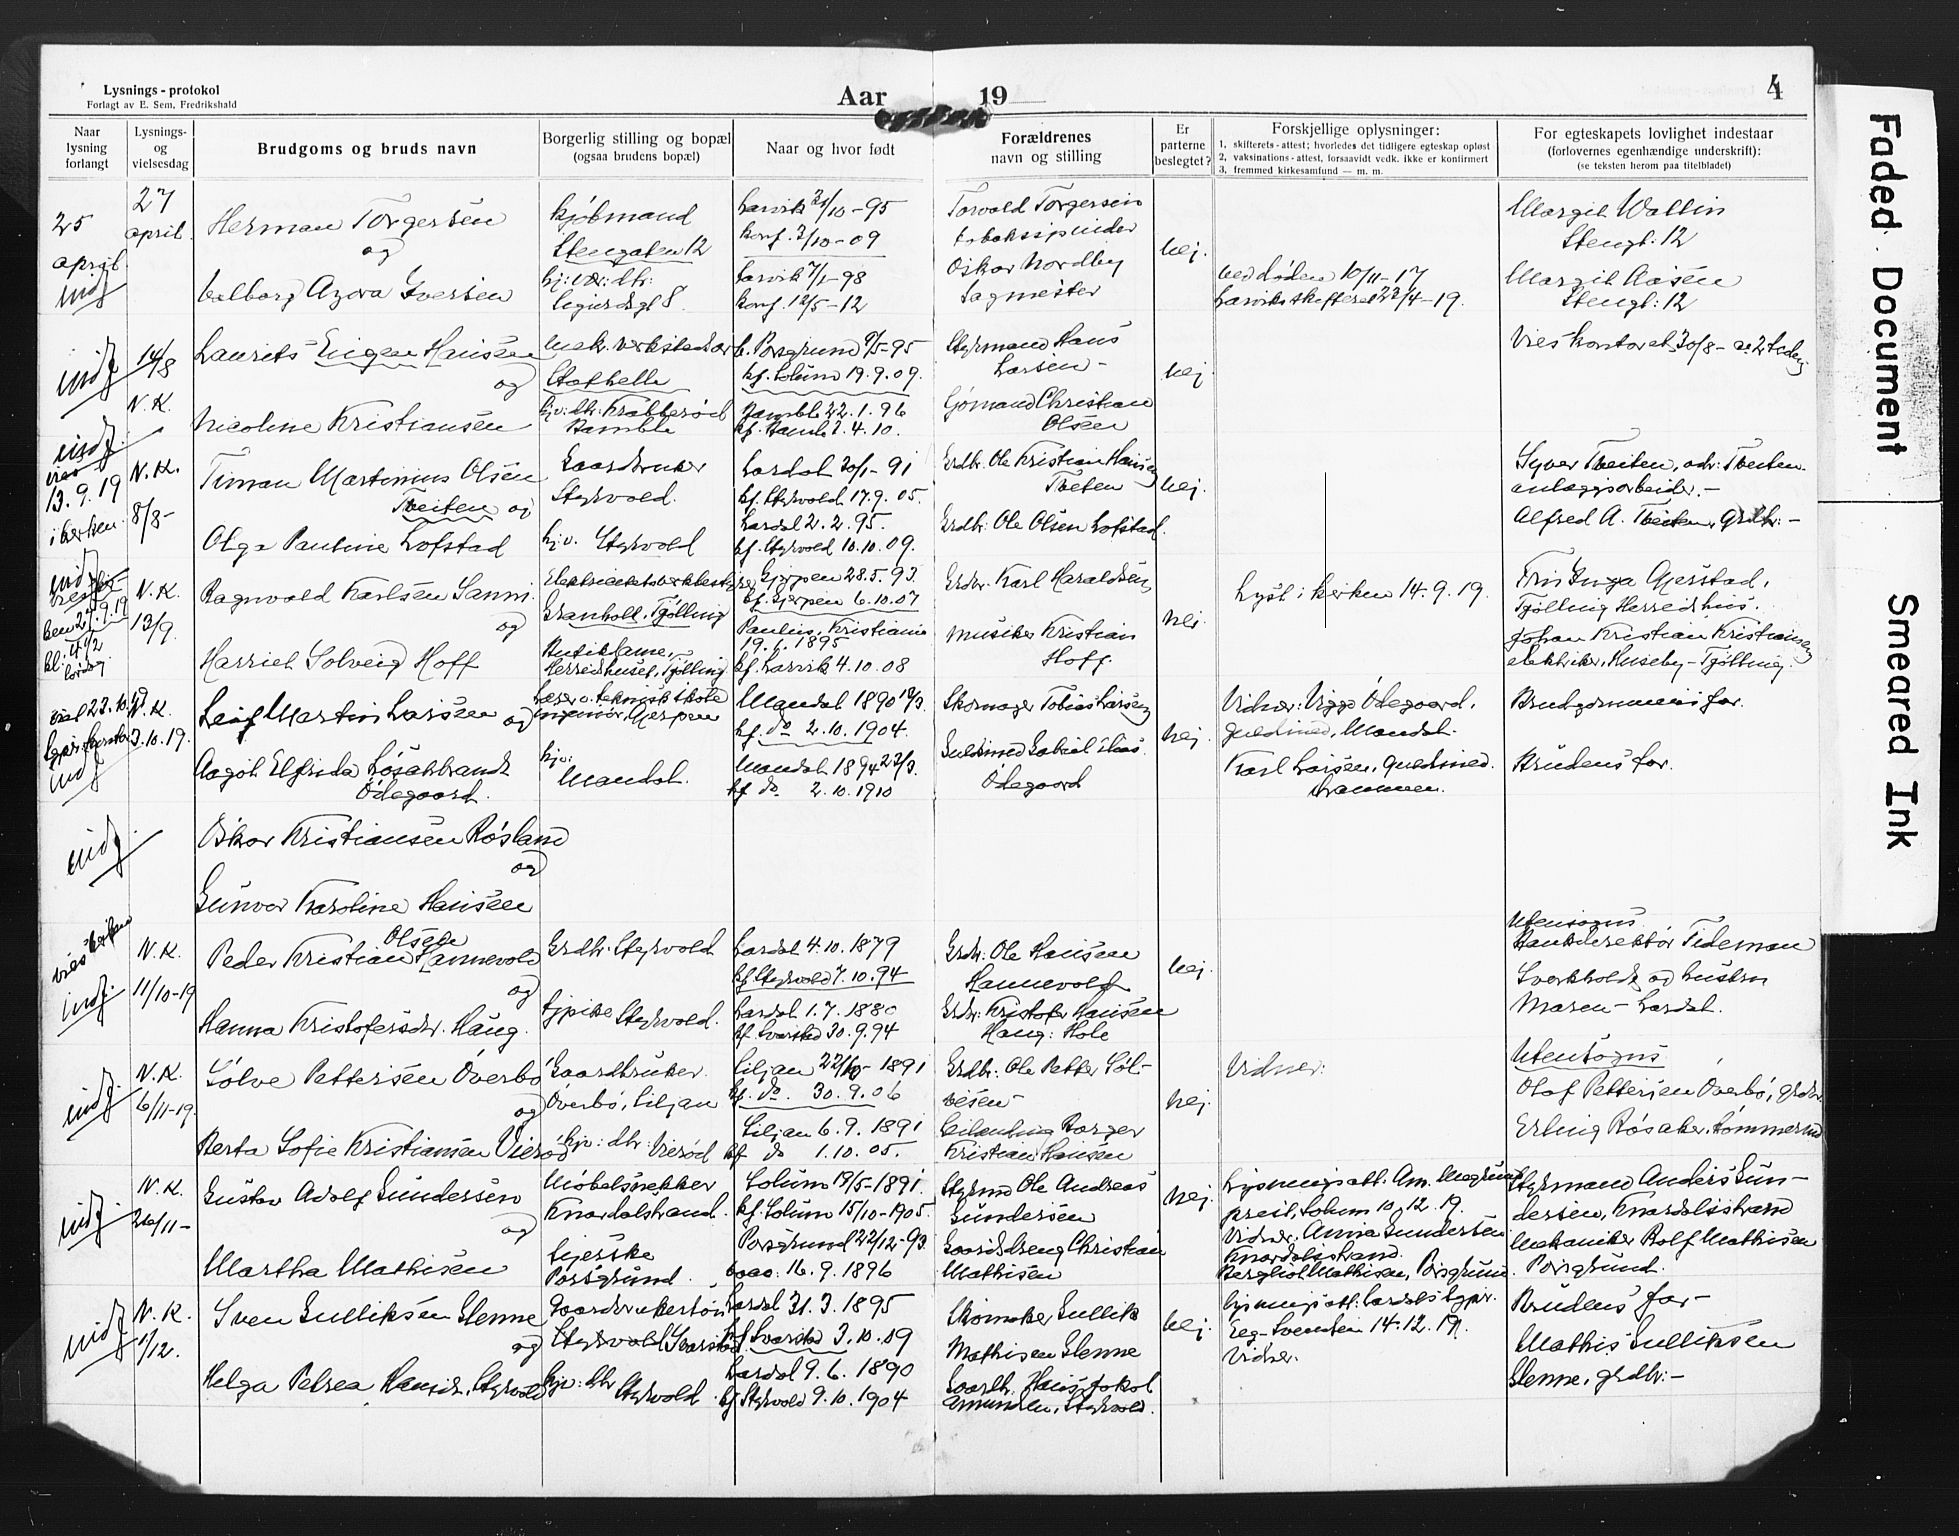 Lysnings - protokol
Forlagt av E. Sem, Fredrikshald
Aar 19
4
Naar lysning forlangt
Lysnings- og vielsesdag
Brudgoms og bruds navn
Borgerlig stilling og bopæl
(ogsaa brudens bopæl)
Naar og hvor født
Forældrenes
navn og stilling
Er parterne beslegtet?
Forskjellige oplysninger:
1, skifterets - attest; hvorledes det tidligere egteskap opløst
2, vaksinations - attest, forsaavidt vedk. ikke er konfirmert
3, fremmed kirkesamfund — m. m.
For egteskapets lovlighet indestaar
(forlovernes egenhændige underskrift):
(se teksten herom paa titelbladet)
25 april
indf
27 april
Herman Torgersen
og
Valborg Azora Iversen
kjøbmand
Stengaten 12
Larvik 21/10-95
konf. 3/10-09
Larvik 7/1-98
konf. 12/5-12
Torvald Torgersen
Oskar Nordby
Sagmester
nej.
ved døden 10/11-17
Larviks skifteret 23/4-19.
Margit Wallin
Stengt. 12
Margit Aasen
Stengt. 12
indf
14/8
N.K.
Laurits Eugen Hansen
og
Nicoline Kristiansen
Stathelle
Bamble
b. Porsgrund 9/5-95
kf. Solum 19.9.09.
Bamble 22.1.96
Styrmand Hans
Larsen -
Christian
Olsen
nej
indf.
13.9.19
N.K.
8/8-
Timan Martinius Olsen
Tveiten og
Olga Pauline Lofstad
Gaardbruker
Styrvold.
hjv. Styrvold
Lardal 20/1-91
kf. Styrvold 17.9.05.
Lardal 2.2.95.
kf. Styrvold 10.10.09.
Grdbr. Ole Kristian Hansen
Tveten
Grdbr. Ole Olsen Lofstad.
nej.
Syver Tveiten, adr: Tveiten
anlægsarbeider.-
Alfred A. Tveiten, Grdbr:-
N.K.
13/9.
Ragnvald Karlsen Sanni
og
Harriet Solveig Hoff
Granholt, Tjølling
Herredshuset, Tjølling
Gjerpen 28.5.93.
kf. Gjerpen 6.10.07
Paulus, Kristiania
19.6.1895
kf. Larvik 4.10.08
Grdbr. Karl Haraldsen
Musiker Kristian
Hoff.
nej
Lyst i kirken 14.9.19.
Frk Inga Gjerstad,
Tjølling Herredshus.
Johan Kristian Kristiansen
elektriker, Huseby - Tjølling.
N.K.
3.10.19.
indf
Leif Martin Larsen og
Aagot Elfrida Løsatbrandt
Ødegaard.
Lærer v. teknisk skole
ingeniør, Gjerpen
hjv:
Mandal.
Mandal 1890 12/3.
kf. do 2.10.1904.
Mandal 1894 23/3.
kf do 2.10.1910
Skomager Tobias Larsen
Ødegaard
nej
Vidner: Viggo Ødegaard,
guldsmed, Mandal.
Karl Larsen, guldsmed.
Drammen.
Brudgommens far.
Brudens far.
indf.
Oskar Kristiansen Røsland
og
Gunvor Karoline Hansen
indf.
N.K.
11/10-19
Olsen
Peder Kristian Hannevold
og
Hanna Kristofersdr. Haug.
Grdbr. Styrvold
tjpike Styrvold.
Lardal 4.10.1879
kf Styrvold 7.10.94
Lardal 1.7.1880
kf. Svarstad 30.9.94
Grdbr. Ole Hansen
Hannevold
Grdbr. Kristofer Hansen
Haug: Hole
nej.
Utensogns
Bankdirektør Tideman
Sverkholdt og hustru
Maren - Lardal.
indf.
N.K.
6/11-19.
Sølve Pettersen Överbö
og
Berta Sofie Kristiansen Vierød
Gaardbruker.
Överbö, Siljan
hjv: dtr: Vierød
Siljan 22/10-1891
kf. do. 30.9.06
Siljan 6.9.1891
kf do 1.10.05.
Grdbr: Ole Petter Søl-
vesen-
Kristian Hansen
nej.
Vidner:
Utensogns
Olaf Pettersen Överbö, grdbr.
Erling Røsaker, tømmermd
indf.
N.K.
26/11-
Gustav Adolf Gundersen
og
Martha Mathisen
Møbelsnekker
Knardalstrand.
Syerske
Porsgrund.
Solum 19/5-1891.
kf. Solum 15/10-1905.
Porsgrund 22/12-93.
vacc: 16.9.1896
Styrmd Ole Andreas
Gundersen
Gaardsdreng Christian
Mathisen
nej.
Lysningsatt. Am. Megrund
prest, Solum 10.12.19.
Vidner. Anna Gundersen
Knardalsstrand.
Bergliot Mathisen, Porsgrund.
Styrmand Anders Gun-
dersen, Knardalsstrand
Mekaniker Rolf Mathisen
Porsgrund.
indf
N.K.
1/12.
Sven Gulliksen Glenne
og
Helga Petrea Hansdr. Styrvold
Gaardbrukersøn
Styrvold, Svarstad
hjv: dtr
Styrvold.
Lardal 31.3.1895
kf. Svarstad 3.10.09
Lardal 9.6.1890
kf Styrvold 9.10.1904
Skomaker Gullik
Mathisen Glenne
Gaardb. Hans Jakob
Amundsen, Styrvold.
nej.
Lysningsatt: Lardals sgpr.
Eeg-Svendsen 14.12.19.
Vidner.
Brudens far-
Mathis Gulliksen
Glenne, grdbr:-
Faded Document
Smeared Ink